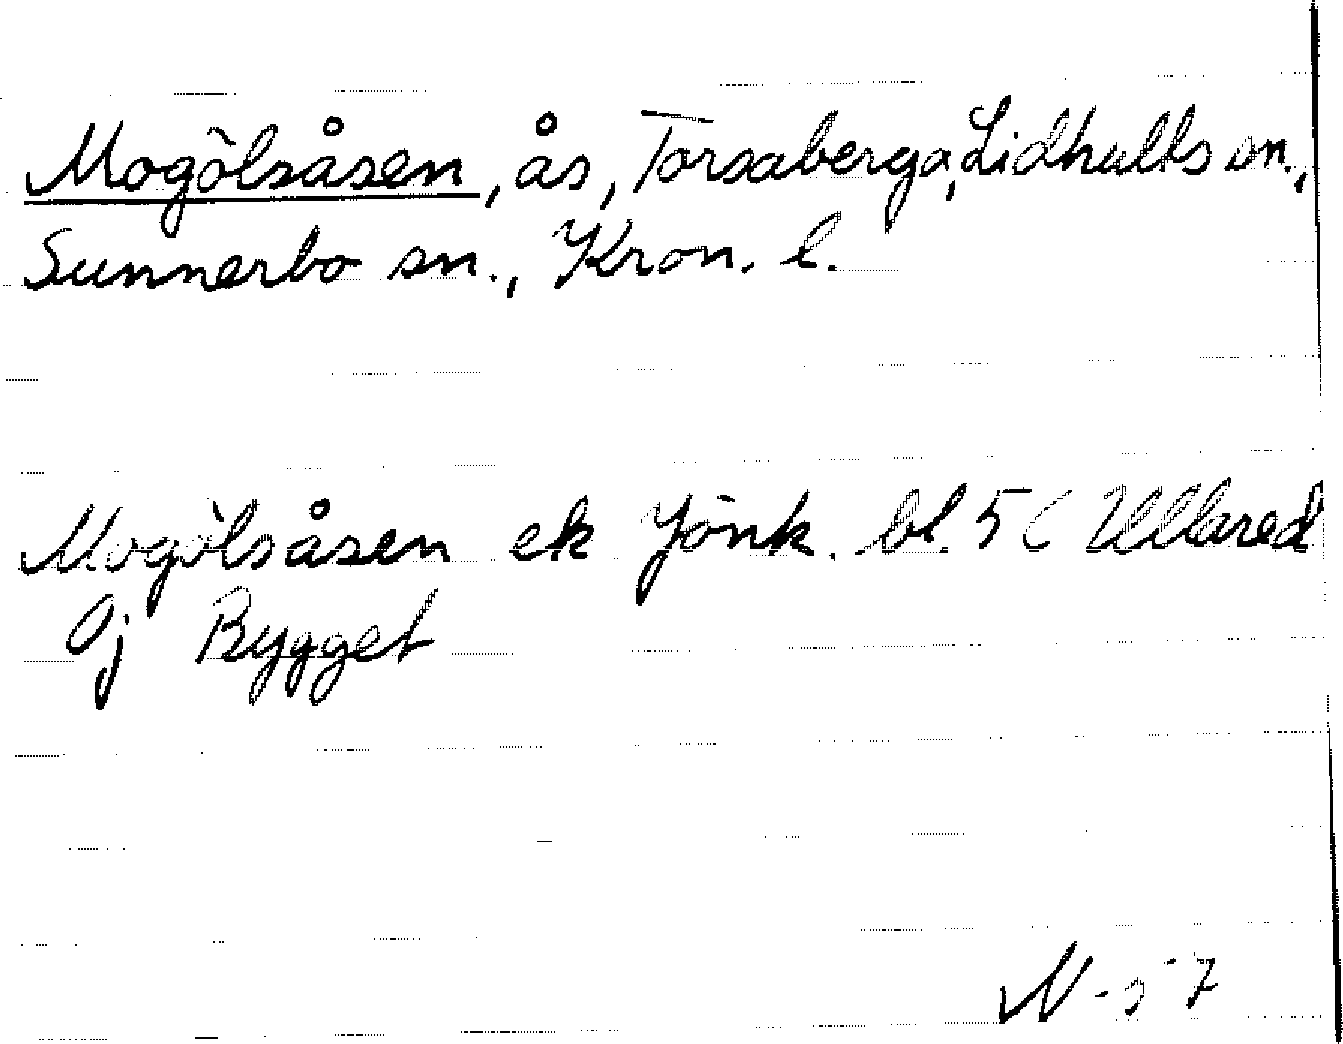 Mogölsåsen, ås, Torsaberga, Lidhults sn.,
Sunnerbo sn., Kron. l.
Mogölsåsen ek Jönk. bl. 5C Ullared
9j Bygget
N-57